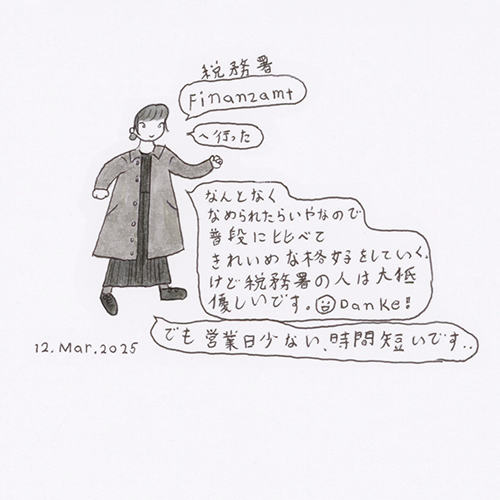 税務署
Finanzamt
へ行った
なんとなく
なめられたらいやなので
普段に比べて
きれいめな格好をしていく。
けど税務署の人は大抵
優しいです。Danke!
でも営業日少ない、時間短いです..
12.Mar.2025